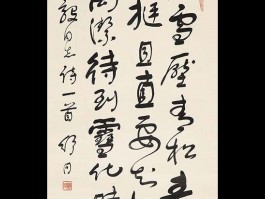 雪壓青松青
挺且直要知
高潔待到雪化時
毅同志詩一首 舒同